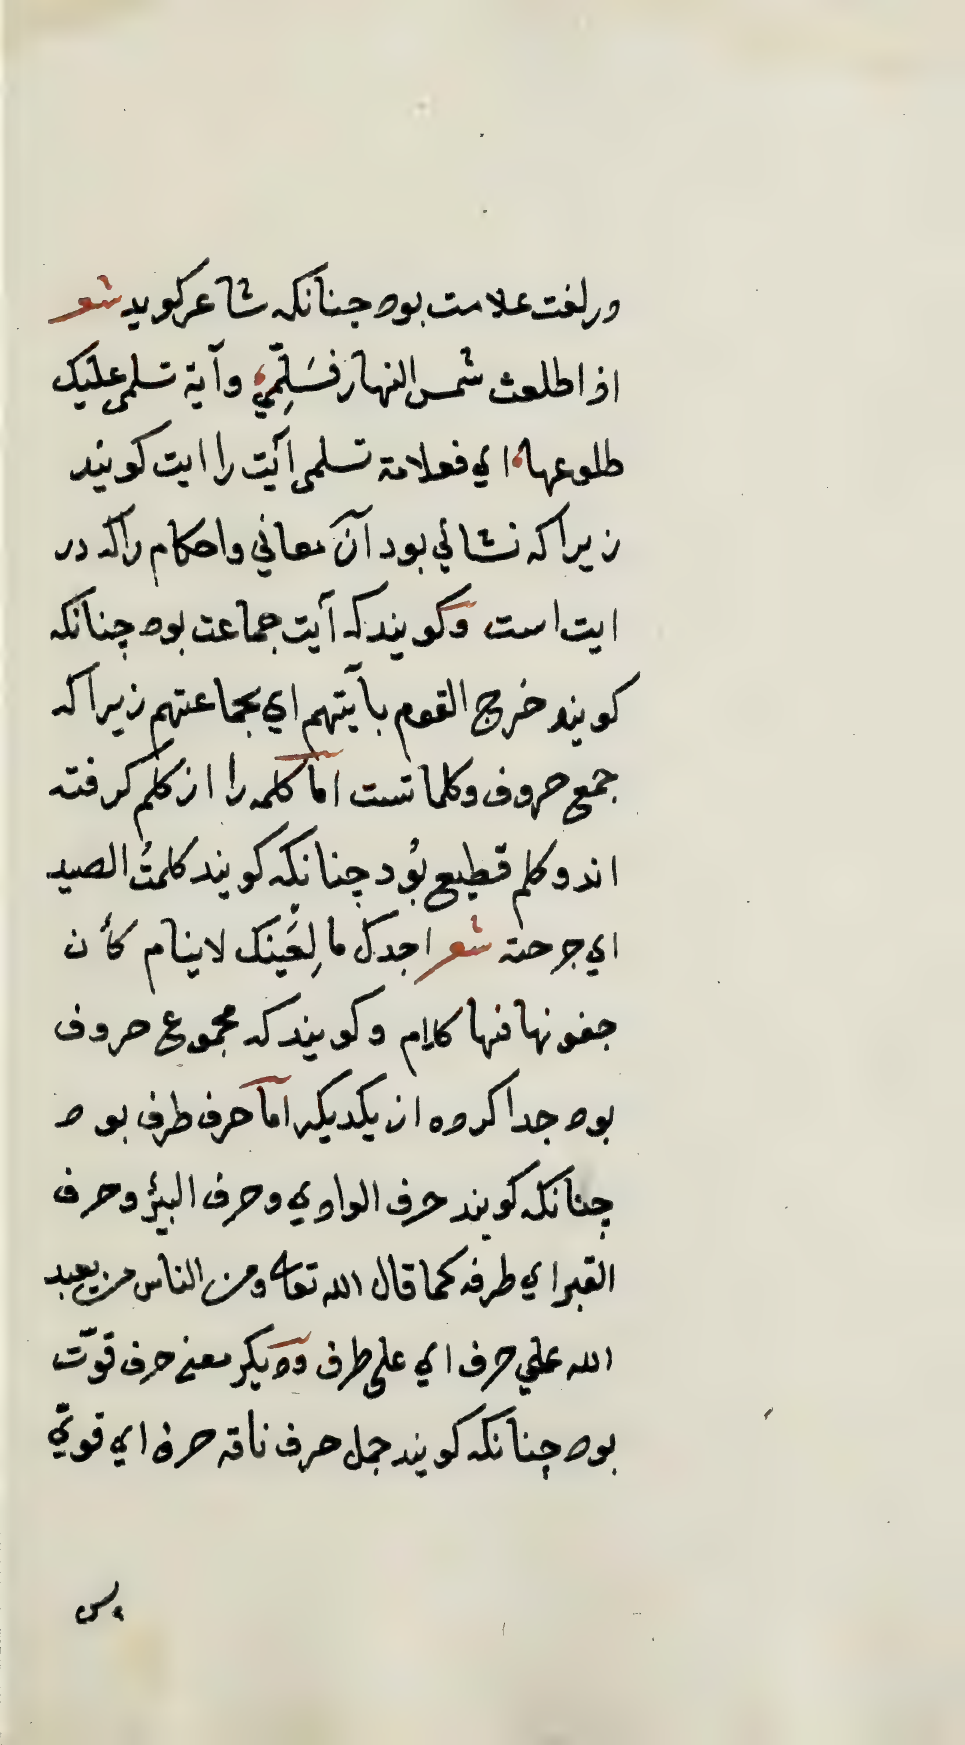 ورلغت علامت بود جنانکه شاعر کوید شعر
اذا طلعت شمس النهار فسَلِّمِي وآية تسلمی علیک
طلوعها ای فعلامة تسلمی آیت را ایت کویند
زیرا که نشانی بود آن معانی واحکام را که در
ایت است وکویند که آیت جماعت بود چنانکه
کویند خرج القوم بآیتهم ای بجماعتهم زیرا که
جمع حروف وکلماتست اما کلمه را از کلم کرفته
اند وکلم قطیع بُود چنانکه کویند کلمتُ الصید
ای جرحته شعر اجدک ما لِعَینک لاینام کأن
جفونها فیها کلام وکویند که مجموع حروف
بود جدا کرده از یکدیکر اما حرف طرف بود
چنانکه کویند حرف الوادي وحرف البئر وحرف
القبر ای طرفه کما قال الله تعالی ومن الناس من یعبد
الله علي حرف ای علی طرف ودیکر معنی حرف قوّت
بود چنانکه کویند جمل حرف ناقه حرف ای قويّ
پس